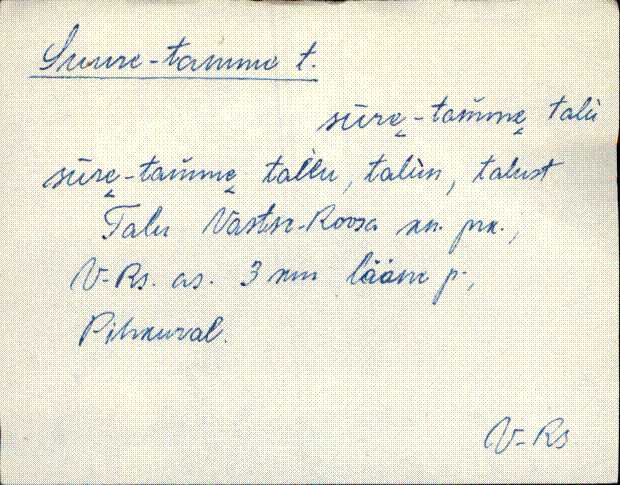 Suure-tamme t.
sūrę-tam̆mę talu
sūrę-tam̆mę tallu, talun, talust
Talu Vastse-Roosa kn. pk.,
V-Rs. as. 3 km lääne p.,
Pihkuval.
V-Rs